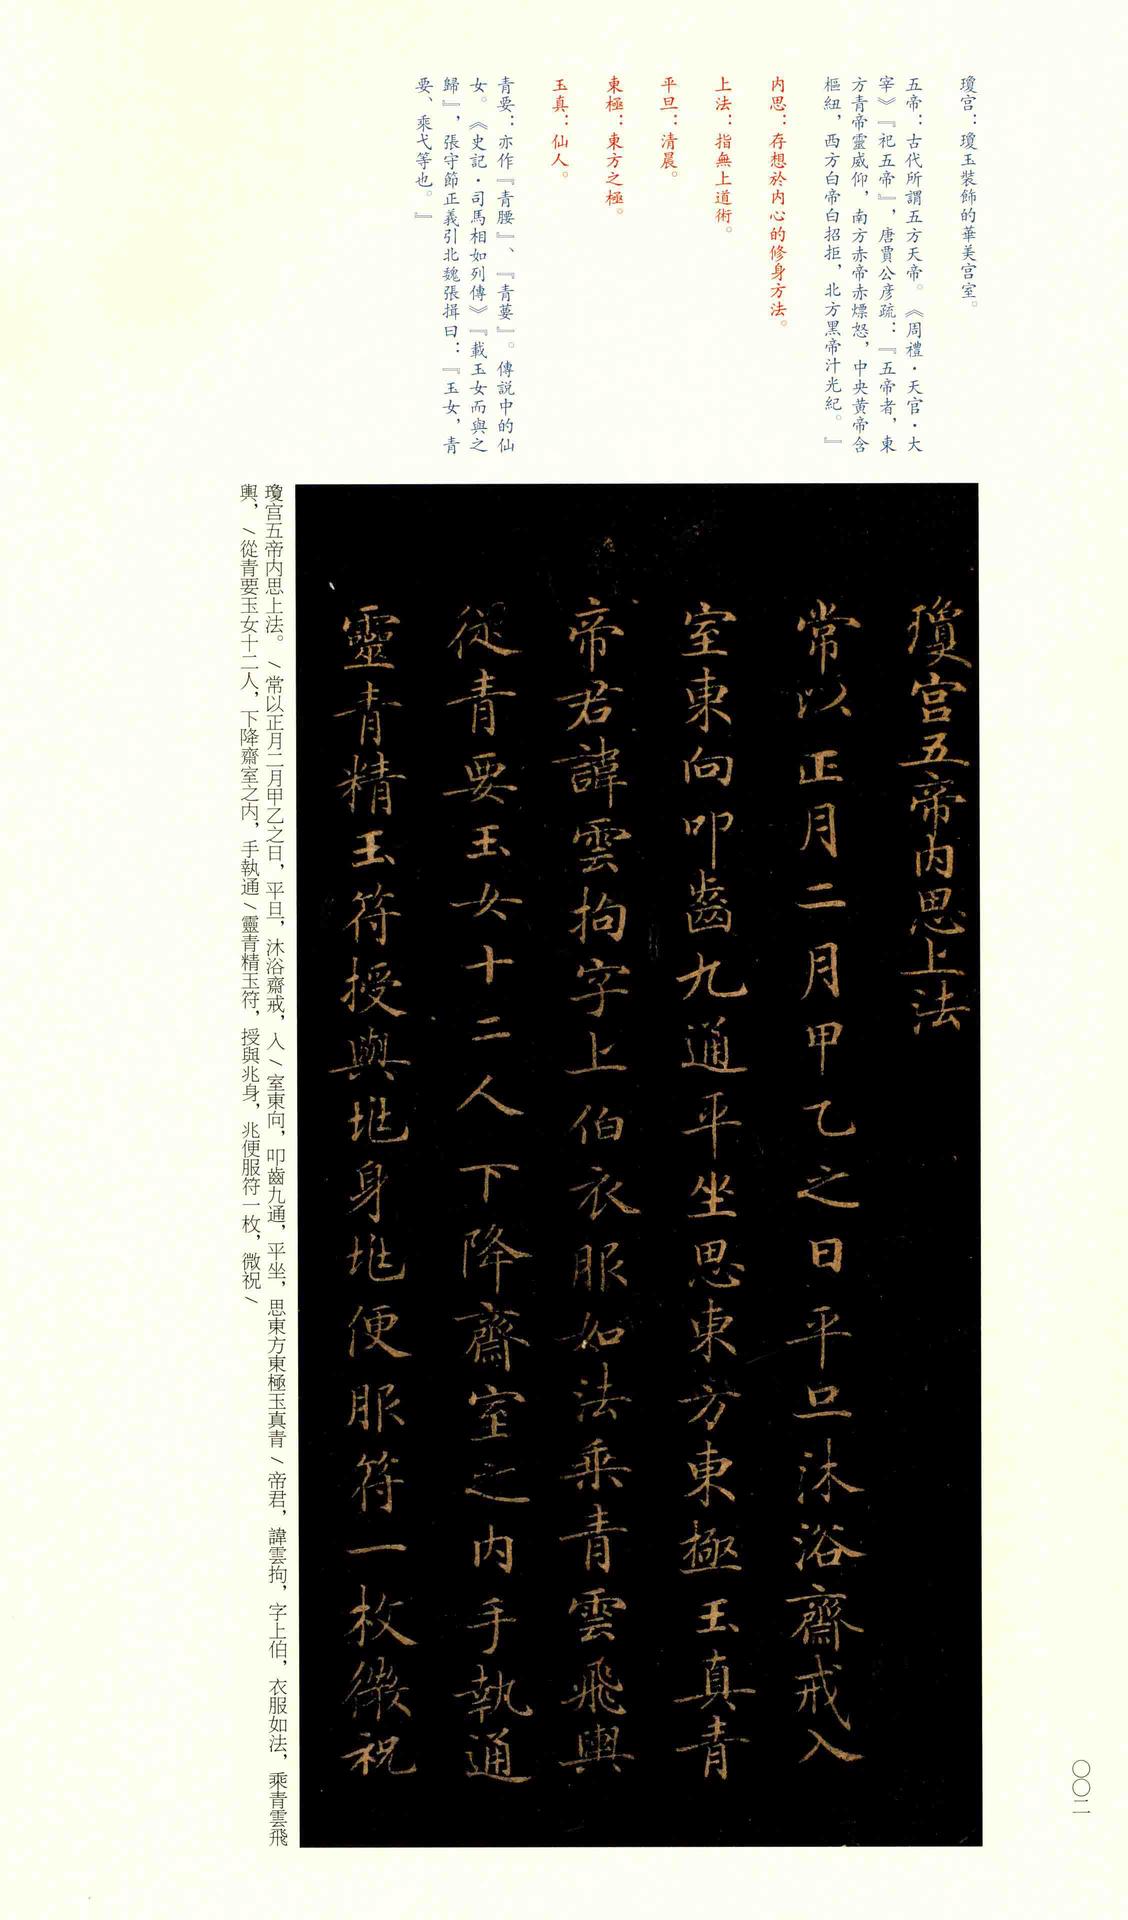 瓊宫：瓊玉裝飾的華美宫室。
五帝：古代所謂五方天帝。《周禮·天官·大
宰》『祀五帝』，唐賈公彦疏：『五帝者，東
方青帝靈威仰，南方赤帝赤熛怒，中央黄帝含
樞紐，西方白帝白招拒，北方黑帝汁光紀。』
内思：存想於内心的修身方法。
上法：指無上道術。
平旦：清晨。
東極：東方之極。
玉真：仙人。
青要：亦作『青腰』、『青葽』。傳説中的仙
女。《史記·司馬相如列傳》『載玉女而與之
歸』，張守節正義引北魏張揖曰：『玉女，青
要、乘弋等也。』
瓊宫五帝内思上法
常以正月二月甲乙之日平旦沐浴齋戒入
室東向叩齒九通平坐思東方東極玉真青
帝君諱雲拘字上伯衣服如法乘青雲飛輿
從青要玉女十二人下降齋室之内手執通
靈青精玉符授與兆身兆便服符一枚微祝
瓊宫五帝内思上法。/常以正月二月甲乙之日，平旦，沐浴齋戒，入/室東向，叩齒九通，平坐，思東方東極玉真青/帝君，諱雲拘，字上伯，衣服如法，乘青雲飛
輿，/從青要玉女十二人，下降齋室之内，手執通/靈青精玉符，授與兆身，兆便服符一枚，微祝/
〇〇二